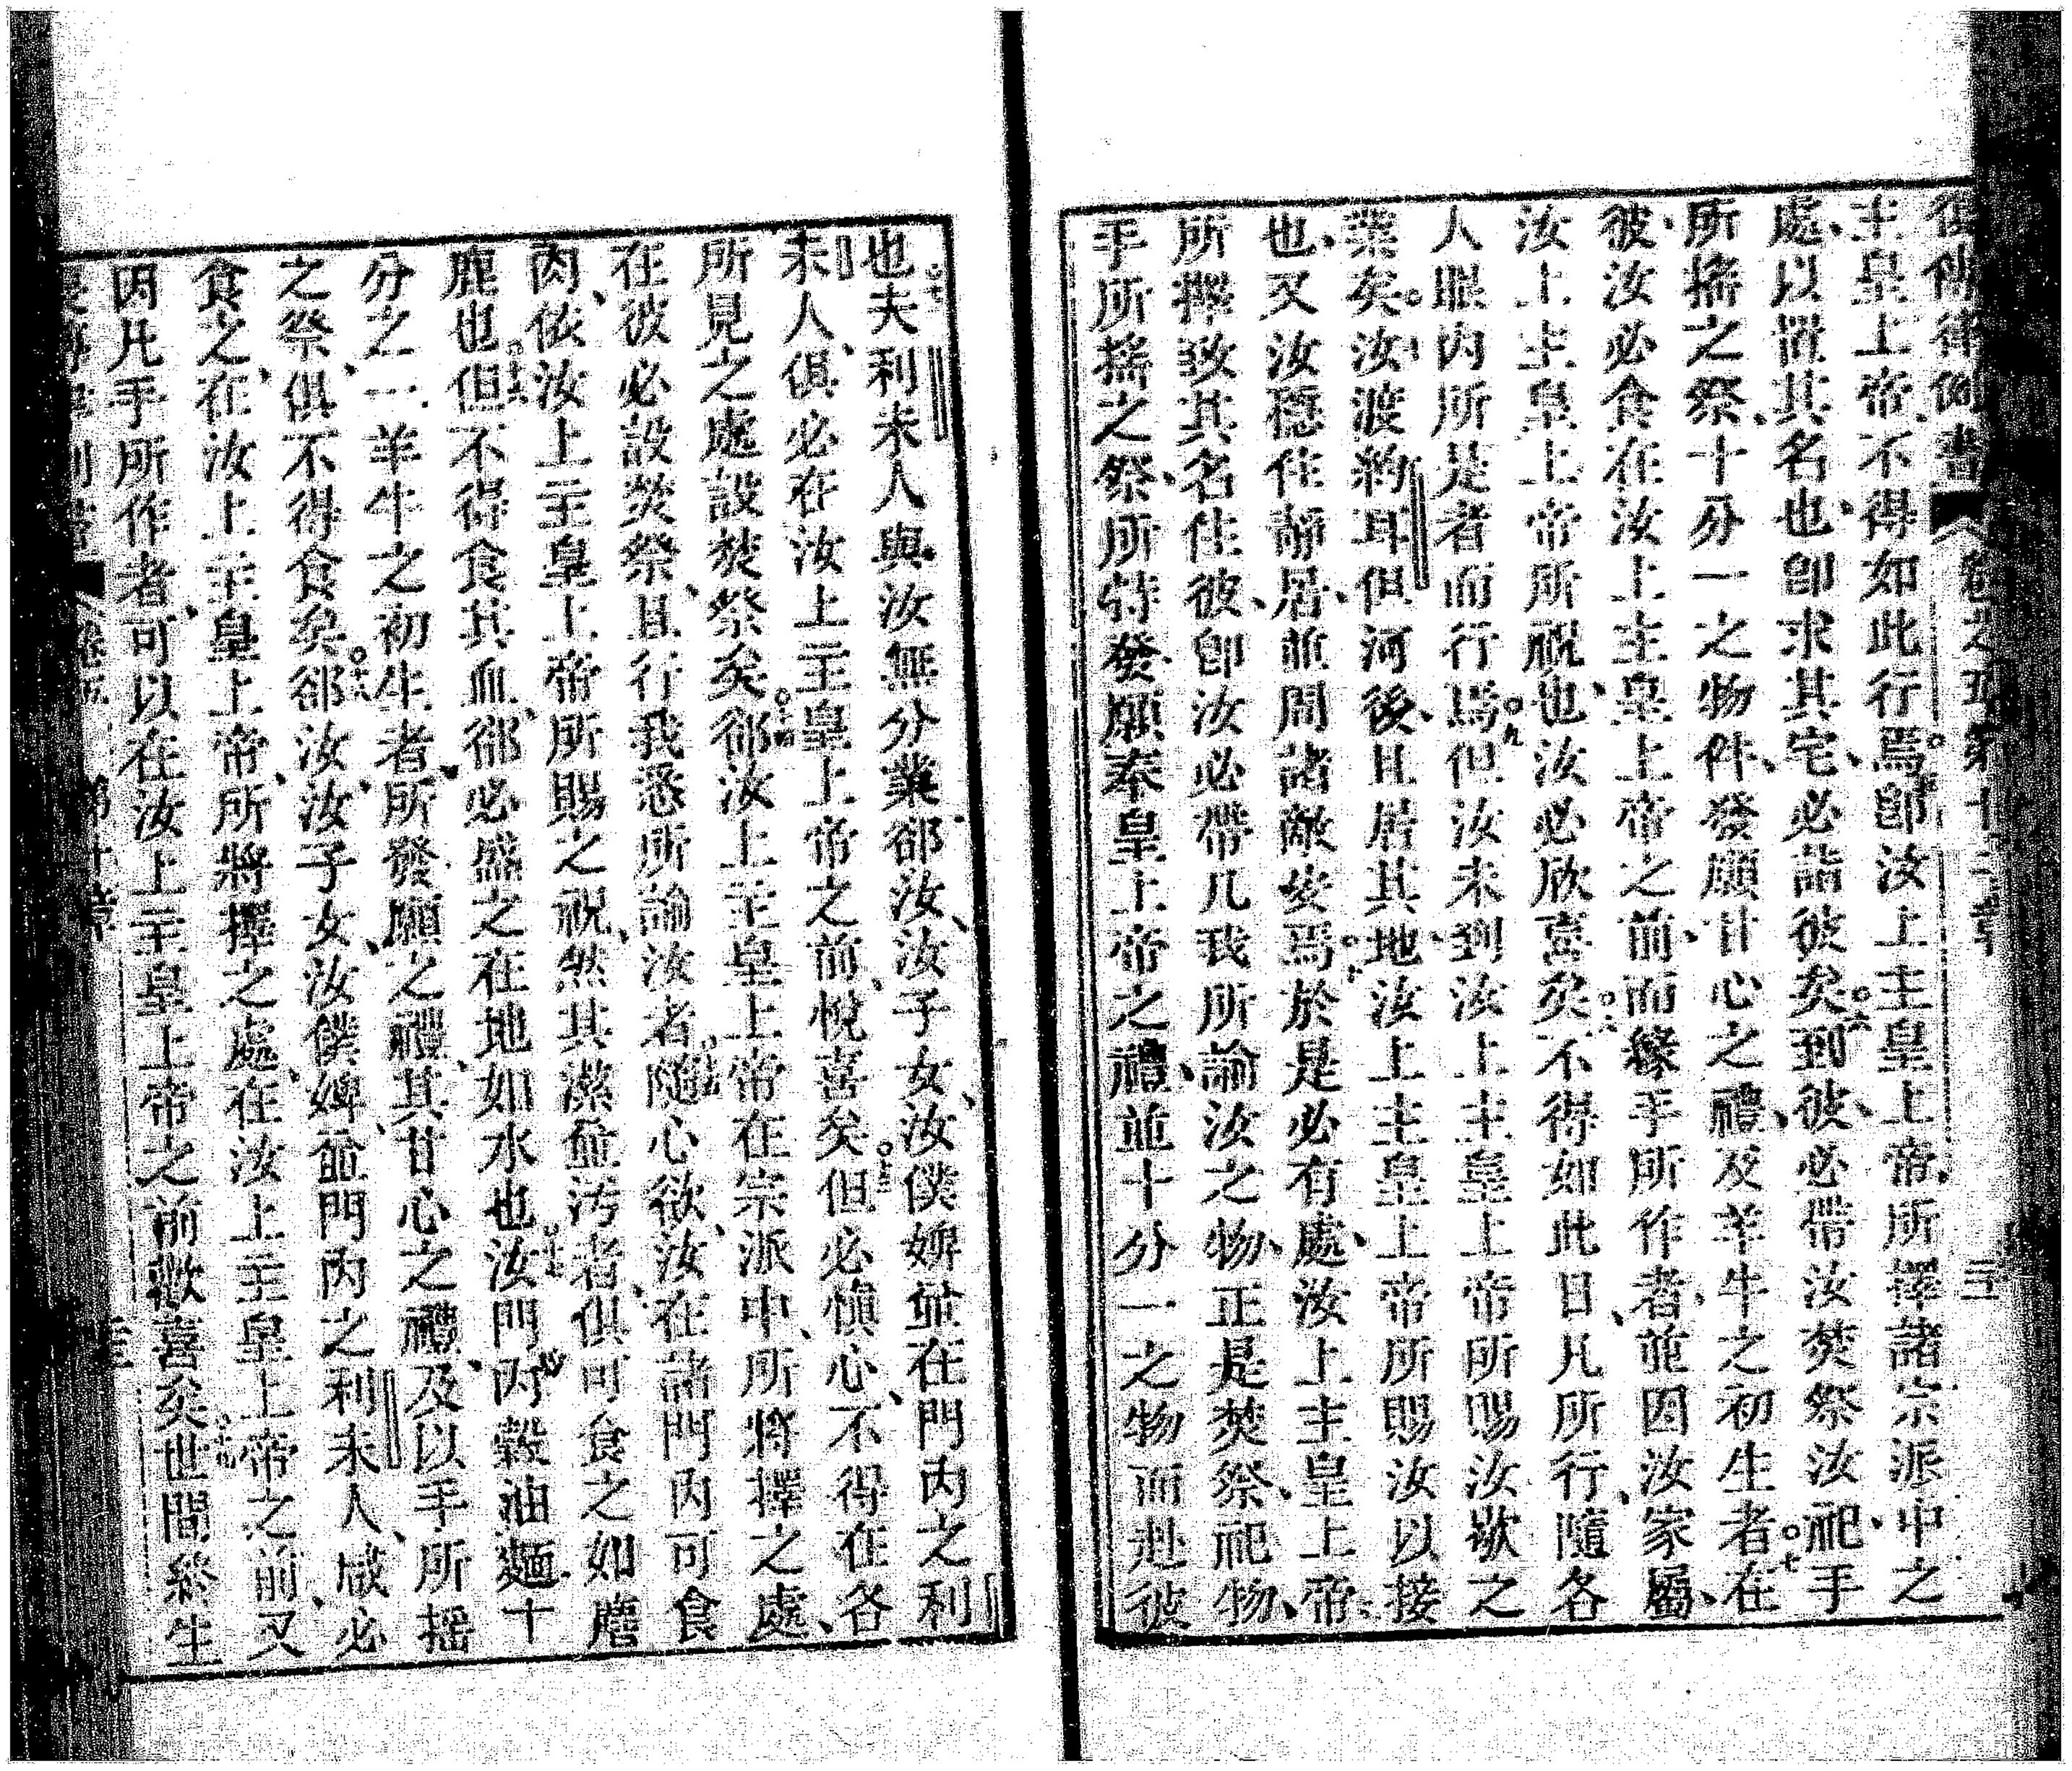 復傳律例書 卷之五 第十二章 三
主皇上帝、不得如此行焉。五卽汝上主皇上帝所擇諸宗派中之
處、以置其名也、卽求其宅、必詣彼矣。六到彼、必帶汝焚祭、汝祀、手
所搖之祭、十分一之物件、發願甘心之禮、及羊牛之初生者。七在
彼、汝必食在汝上主皇上帝之前、而緣手所作者、並因汝家屬、
汝上主皇上帝所祝也、汝必欣喜矣。八不得如此日、凡所行、隨各
人眼內所是者而行焉。九但汝未到汝上主皇上帝所賜汝歇之
業矣。十汝渡約耳但河後、且居其地、汝上主皇上帝所賜汝以接
也、又汝穩住靜居、並周諸敵安焉。十一於是必有處、汝上主皇上帝
所擇致其名住彼、卽汝必帶凡我所諭汝之物、正是焚祭、祀物、
手所搖之祭、所特發願奉皇上帝之禮、並十分一之物而赴彼
也。十二夫利未人與汝無分業、卻汝、汝子女、汝僕婢並在門內之利
未人、俱必在汝上主皇上帝之前、悅喜矣。十三但必慎心、不得在各
所見之處設焚祭矣。十四卻汝上主皇上帝在宗派中、所將擇之處、
在彼必設焚祭、且行我悉所諭汝者。十五隨心欲、汝在諸門內可食
肉、依汝上主皇上帝所賜之祝、然其潔並污者、俱可食之如麿
鹿也。十六但不得食其血、卻必盛之在地如水也。十七汝門內穀油麵十
分之一、羊牛之初生者、所發願之禮、其甘心之禮、及以手所搖
之祭、俱不得食矣。十八卻汝、汝子女、汝僕婢並門內之利未人、咸必
食之、在汝上主皇上帝、所將擇之處、在汝上主皇上帝之前、又
因凡手所作者、可以在汝上主皇上帝之前歡喜矣。十九世間終生
卷五 第十二章 三